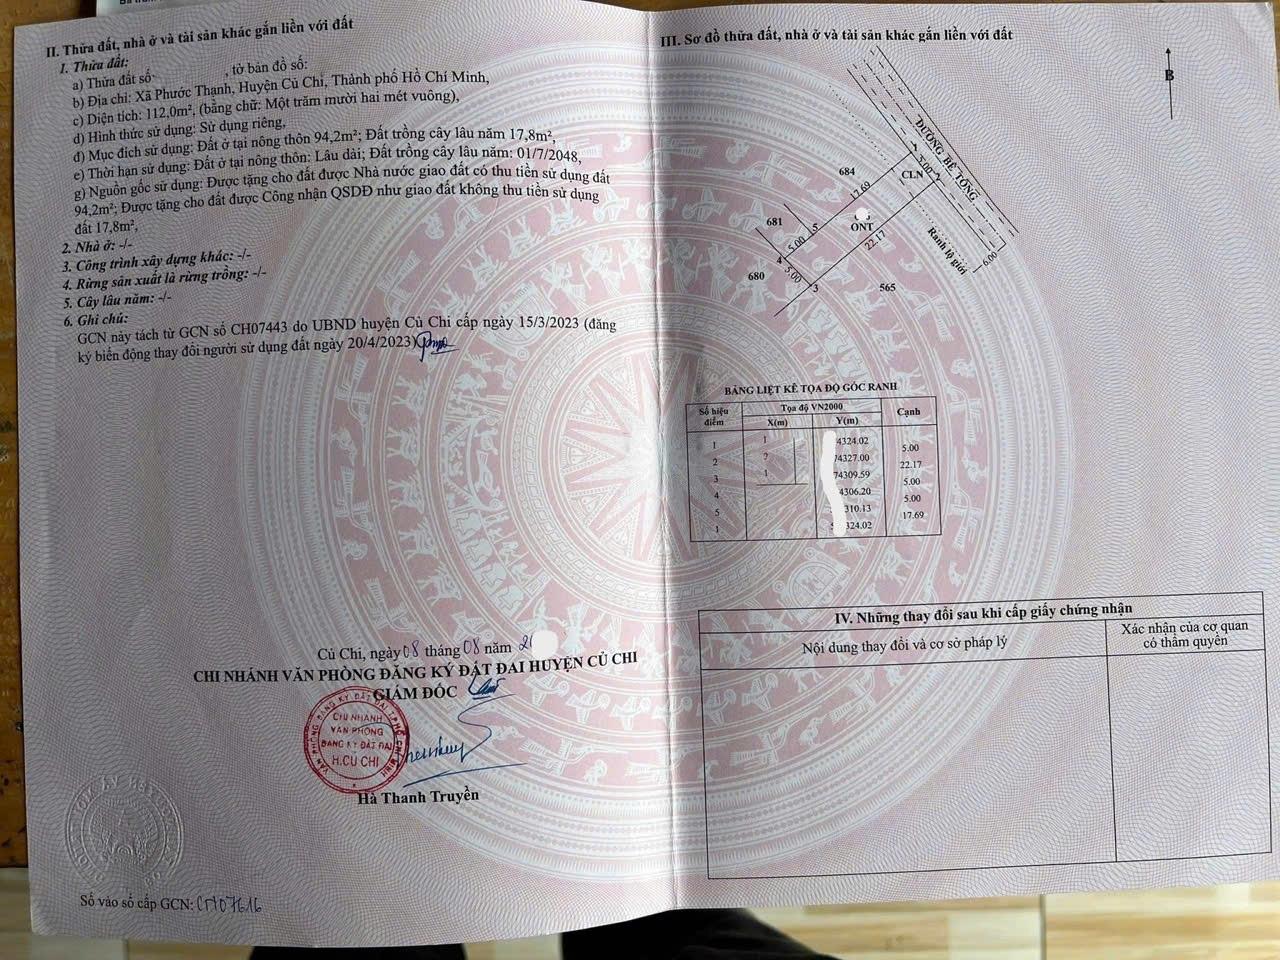 II. Thửa đất, nhà ở và tài sản khác gắn liền với đất
1. Thửa đất:
a) Thửa đất số: , tờ bản đồ số:
b) Địa chỉ: Xã Phước Thạnh, Huyện Củ Chi, Thành phố Hồ Chí Minh,
c) Diện tích: 112,0m², (bằng chữ: Một trăm mười hai mét vuông),
d) Hình thức sử dụng: Sử dụng riêng,
đ) Mục đích sử dụng: Đất ở tại nông thôn 94,2m²; Đất trồng cây lâu năm 17,8m²,
e) Thời hạn sử dụng: Đất ở tại nông thôn: Lâu dài; Đất trồng cây lâu năm: 01/7/2048,
g) Nguồn gốc sử dụng: Được tặng cho đất được Nhà nước giao đất có thu tiền sử dụng đất
94,2m²; Được tặng cho đất được Công nhận QSDĐ như giao đất không thu tiền sử dụng
đất 17,8m²,
2. Nhà ở: -/-
3. Công trình xây dựng khác: -/-
4. Rừng sản xuất là rừng trồng: -/-
5. Cây lâu năm: -/-
6. Ghi chú:
GCN này tách từ GCN số CH07443 do UBND huyện Củ Chi cấp ngày 15/3/2023 (đăng
ký biến động thay đổi người sử dụng đất ngày 20/4/2023)
Củ Chi, ngày 08 tháng 08 năm 2
CHI NHÁNH VĂN PHÒNG ĐĂNG KÝ ĐẤT ĐAI HUYỆN CỦ CHI
GIÁM ĐỐC
VĂN PHÒNG ĐĂNG KÝ ĐẤT ĐAI T.P HỒ CHÍ MINH
CHI NHÁNH
VĂN PHÒNG
ĐĂNG KÝ ĐẤT ĐAI
H.CỦ CHI
Hà Thanh Truyền
Số vào sổ cấp GCN: CH07616
III. Sơ đồ thửa đất, nhà ở và tài sản khác gắn liền với đất
B
ĐƯỜNG BÊ TÔNG
1
5.00
2
684
CLN
17.69
681
5
ONT
22.17
Ranh lộ giới
6.00
5.00
4
680
5.00
3
565
BẢNG LIỆT KÊ TỌA ĐỘ GÓC RANH
Số hiệu điểm Tọa độ VN2000 Cạnh
X(m) Y(m)
1 1 4324.02
5.00
2 2 74327.00
22.17
3 1 74309.59
5.00
4 4306.20
5.00
5 310.13
17.69
1 324.02
IV. Những thay đổi sau khi cấp giấy chứng nhận
Nội dung thay đổi và cơ sở pháp lý
Xác nhận của cơ quan
có thẩm quyền